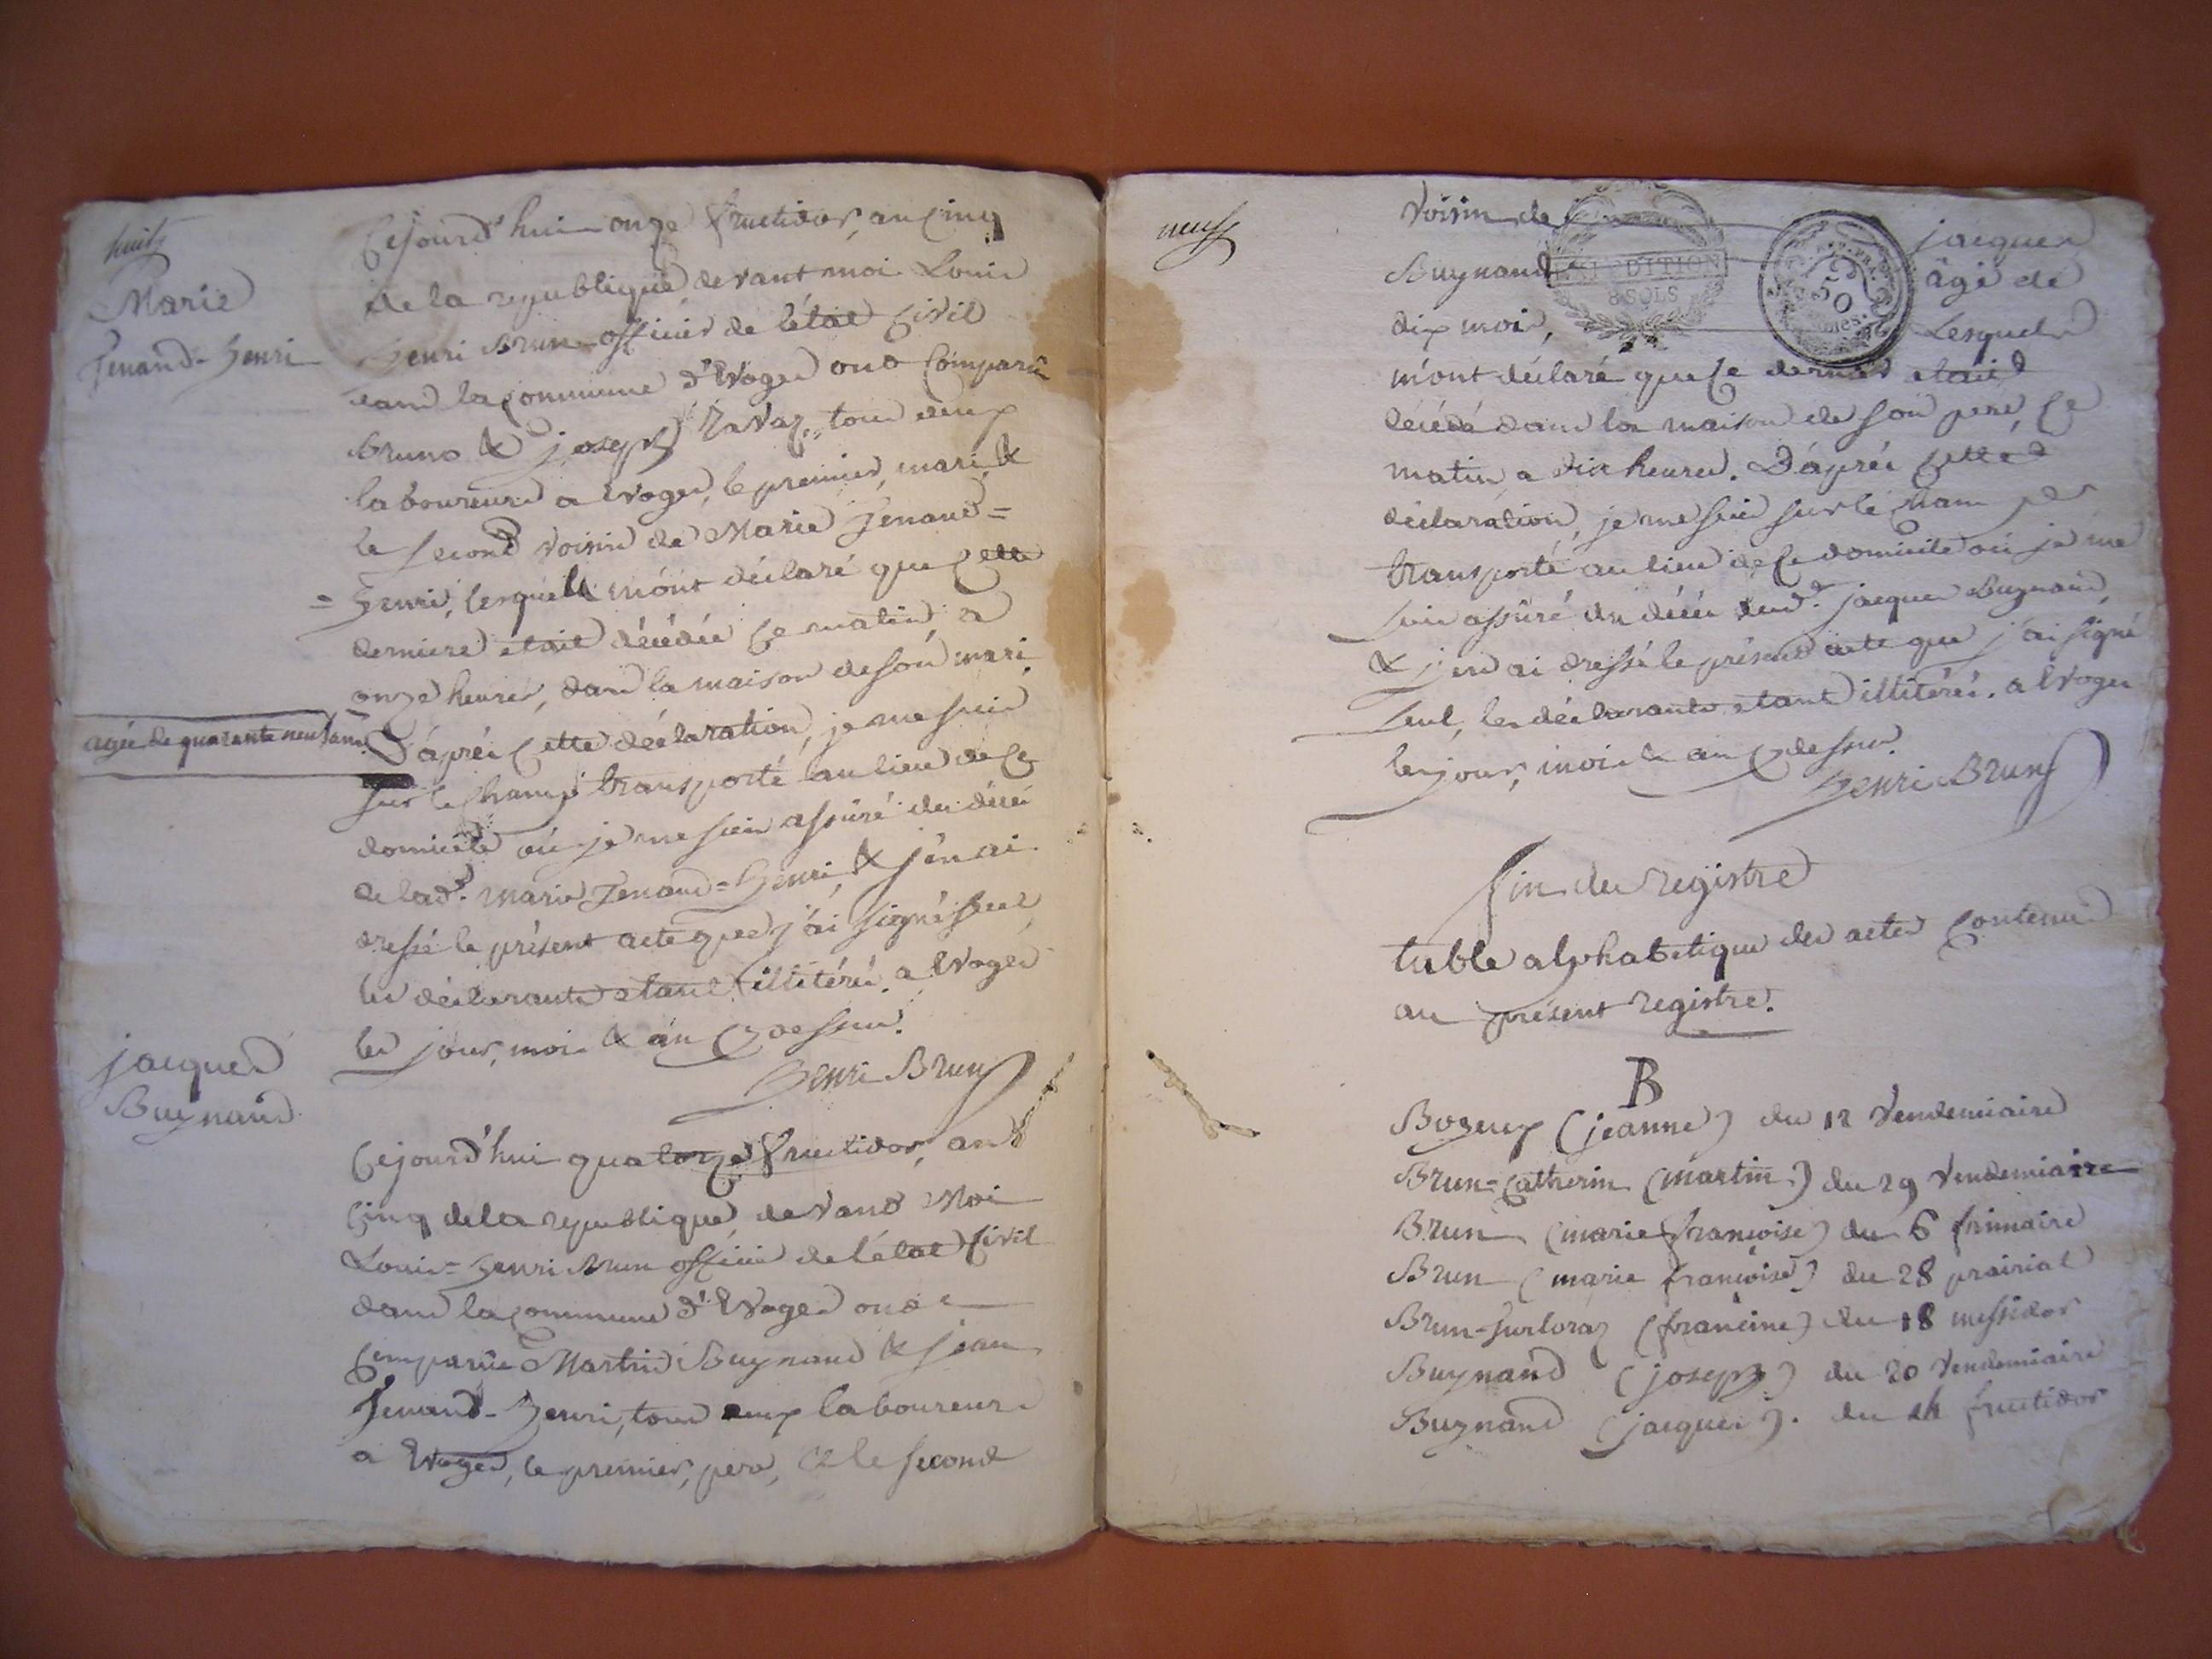 huit
Marie
Jenand-Henri
Cejourd'hui onze fructidor, an cinq
de la republique devant moi Louis
Henri Brun officier de l'état civil
dans la commune d'Evoges ont comparû
Bruno & joseph Ravaz, tous deux
laboureurs a Evoges, le premier, mari, &
le second voisin de Marie Jenand=
=Henri, lesquels m'ont déclaré que cette
derniere etait décédée ce matin a
onze heures, dans la maison de son mari
agée de quarante neuf ans.
D'après cette déclaration, je me suis
sur le champ transporté au lieu de ce
domicile où je me suis assûré du décès
de lad.e marie Jenand=Henri, & j'en ai
dressé le présent acte que j'ai signé seul
les déclarants etant illitérés. a Evoges
les jour, mois & an cy dessus.
Henri Brun
jacques
Buynand
Cejourd'hui quatorze fructidor, an
cinq de la republique devant Moi
Louis=Henri Brun officier de l'état civil
dans la commune d'Evoges ont
comparûs Martin Buynand & jean
Jenand-Henri, tous deux laboureurs
a Evoges, le premier, pere, & le second
neuf
voisin de jacques
Buynand âgé de
dix mois, Lesquels
EXPEDITION
8 SOLS
50
m'ont déclaré que ce dernier etait
décédé dans la maison de son pere, ce
matin a dix heures. D'après cette
déclaration, je me suis sur le cham
transporté au lieu de ce domicile où je me
suis assûré du décès dud.t jacques Buynand,
& j'en ai dressé le présent acte que j'ai signé
seul, les déclarants etant illitérés. a Evoges
les jour, mois & an cy dessus.
Henri Brun
fin du registre
table alphabetique des actes contenus
au présent registre.
B
Bozeux (jeanne) du 12 Vendemiaire
Brun=Catherin (martin) du 29 Vendemiaire
Brun (marie françoise) du 6 frimaire
Brun (marie françoise) du 28 prairial
Brun-surloraz (francine) du 18 messidor
Buynand (joseph) du 20 Vendemiaire
Buynand (jacques). du 14 fructidor